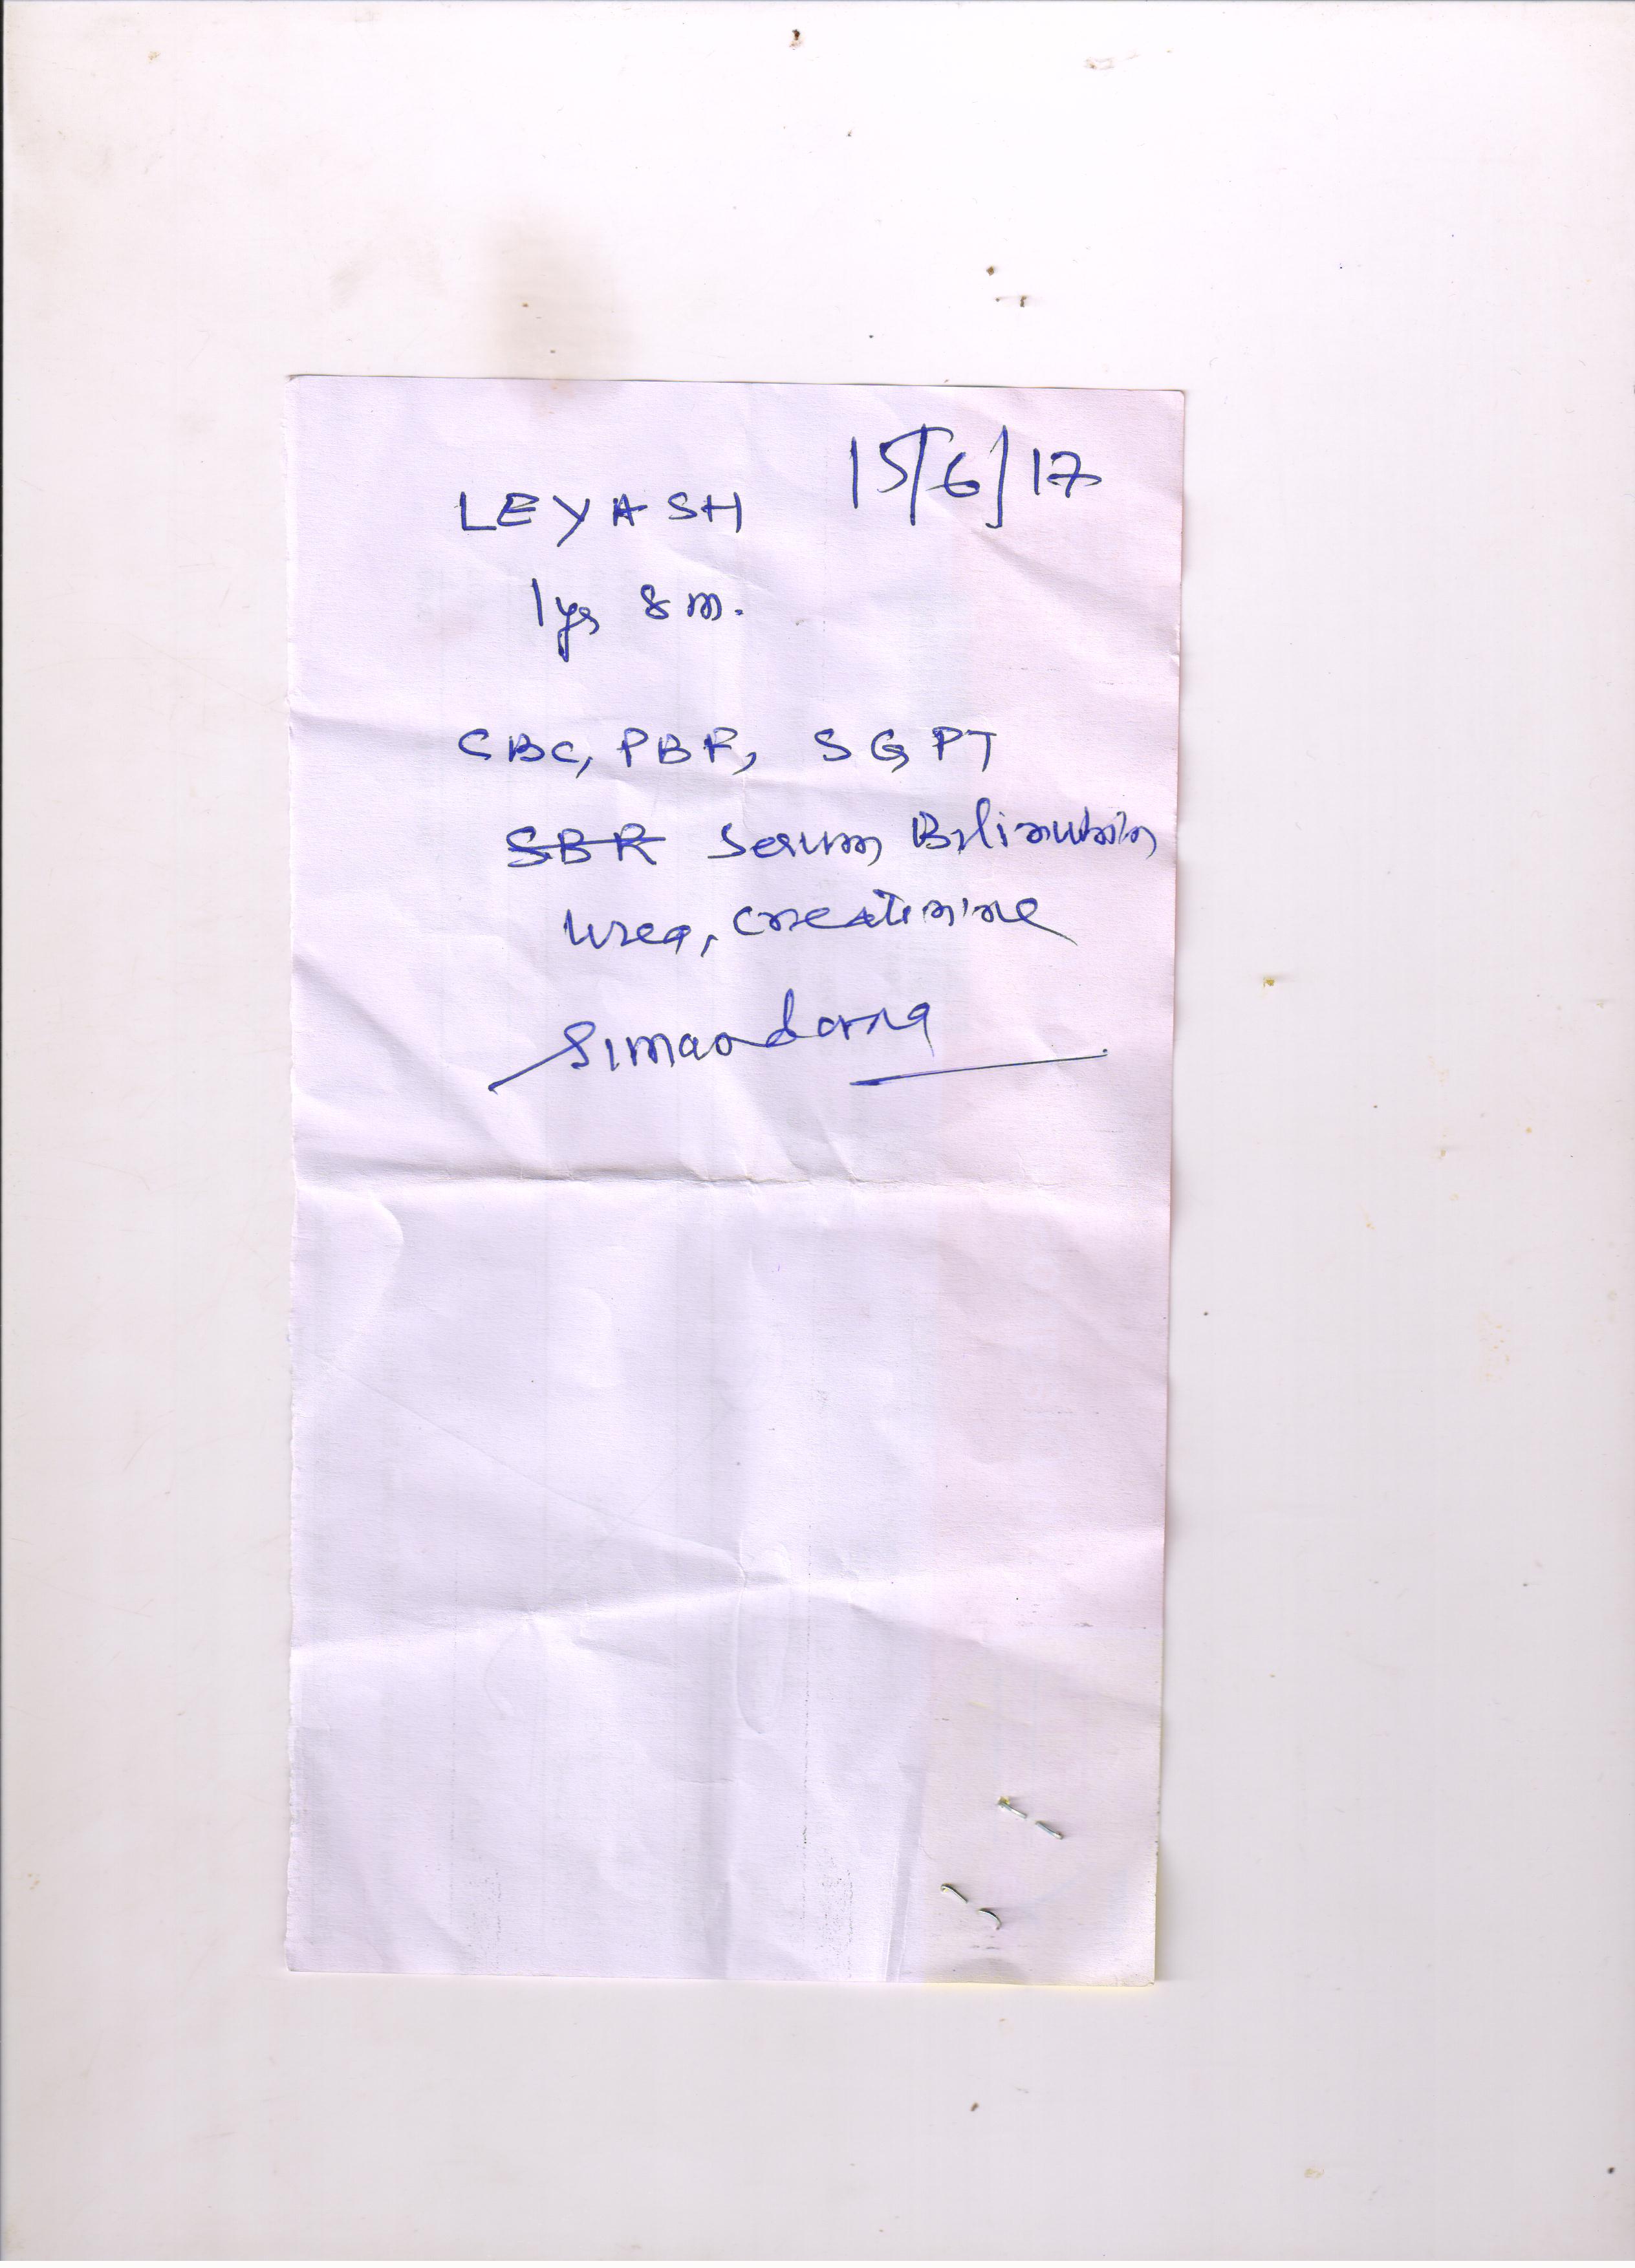 15/6/17
LEYASH
1yrs 8m.
CBC, PBF, SGPT
SBR Serum Bilirubin
Urea, Creatinine